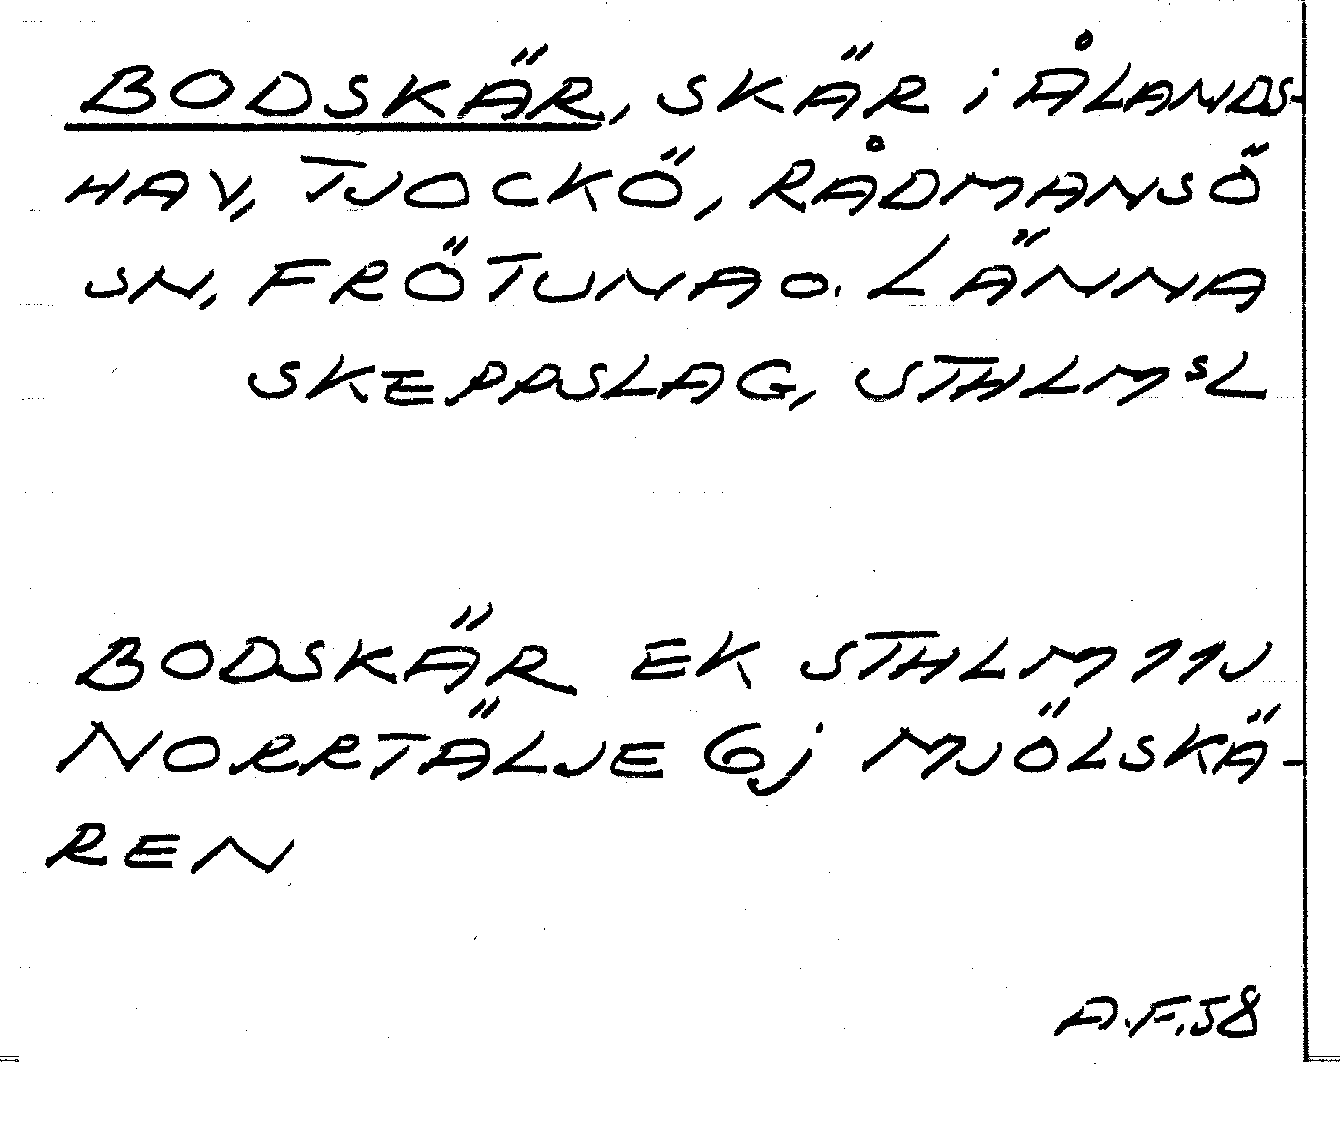 BODSKÄR, SKÄR i ÅLANDS-
HAV, TJOCKÖ, RÅDMANSÖ
SN, FRÖTUNA O. LÄNNA
SKEPPSLAG, STHLMSL
BODSKÄR EK STHLM 11J
NORRTÄLJE 6j MJÖLSKÄ-
REN
A.F.58